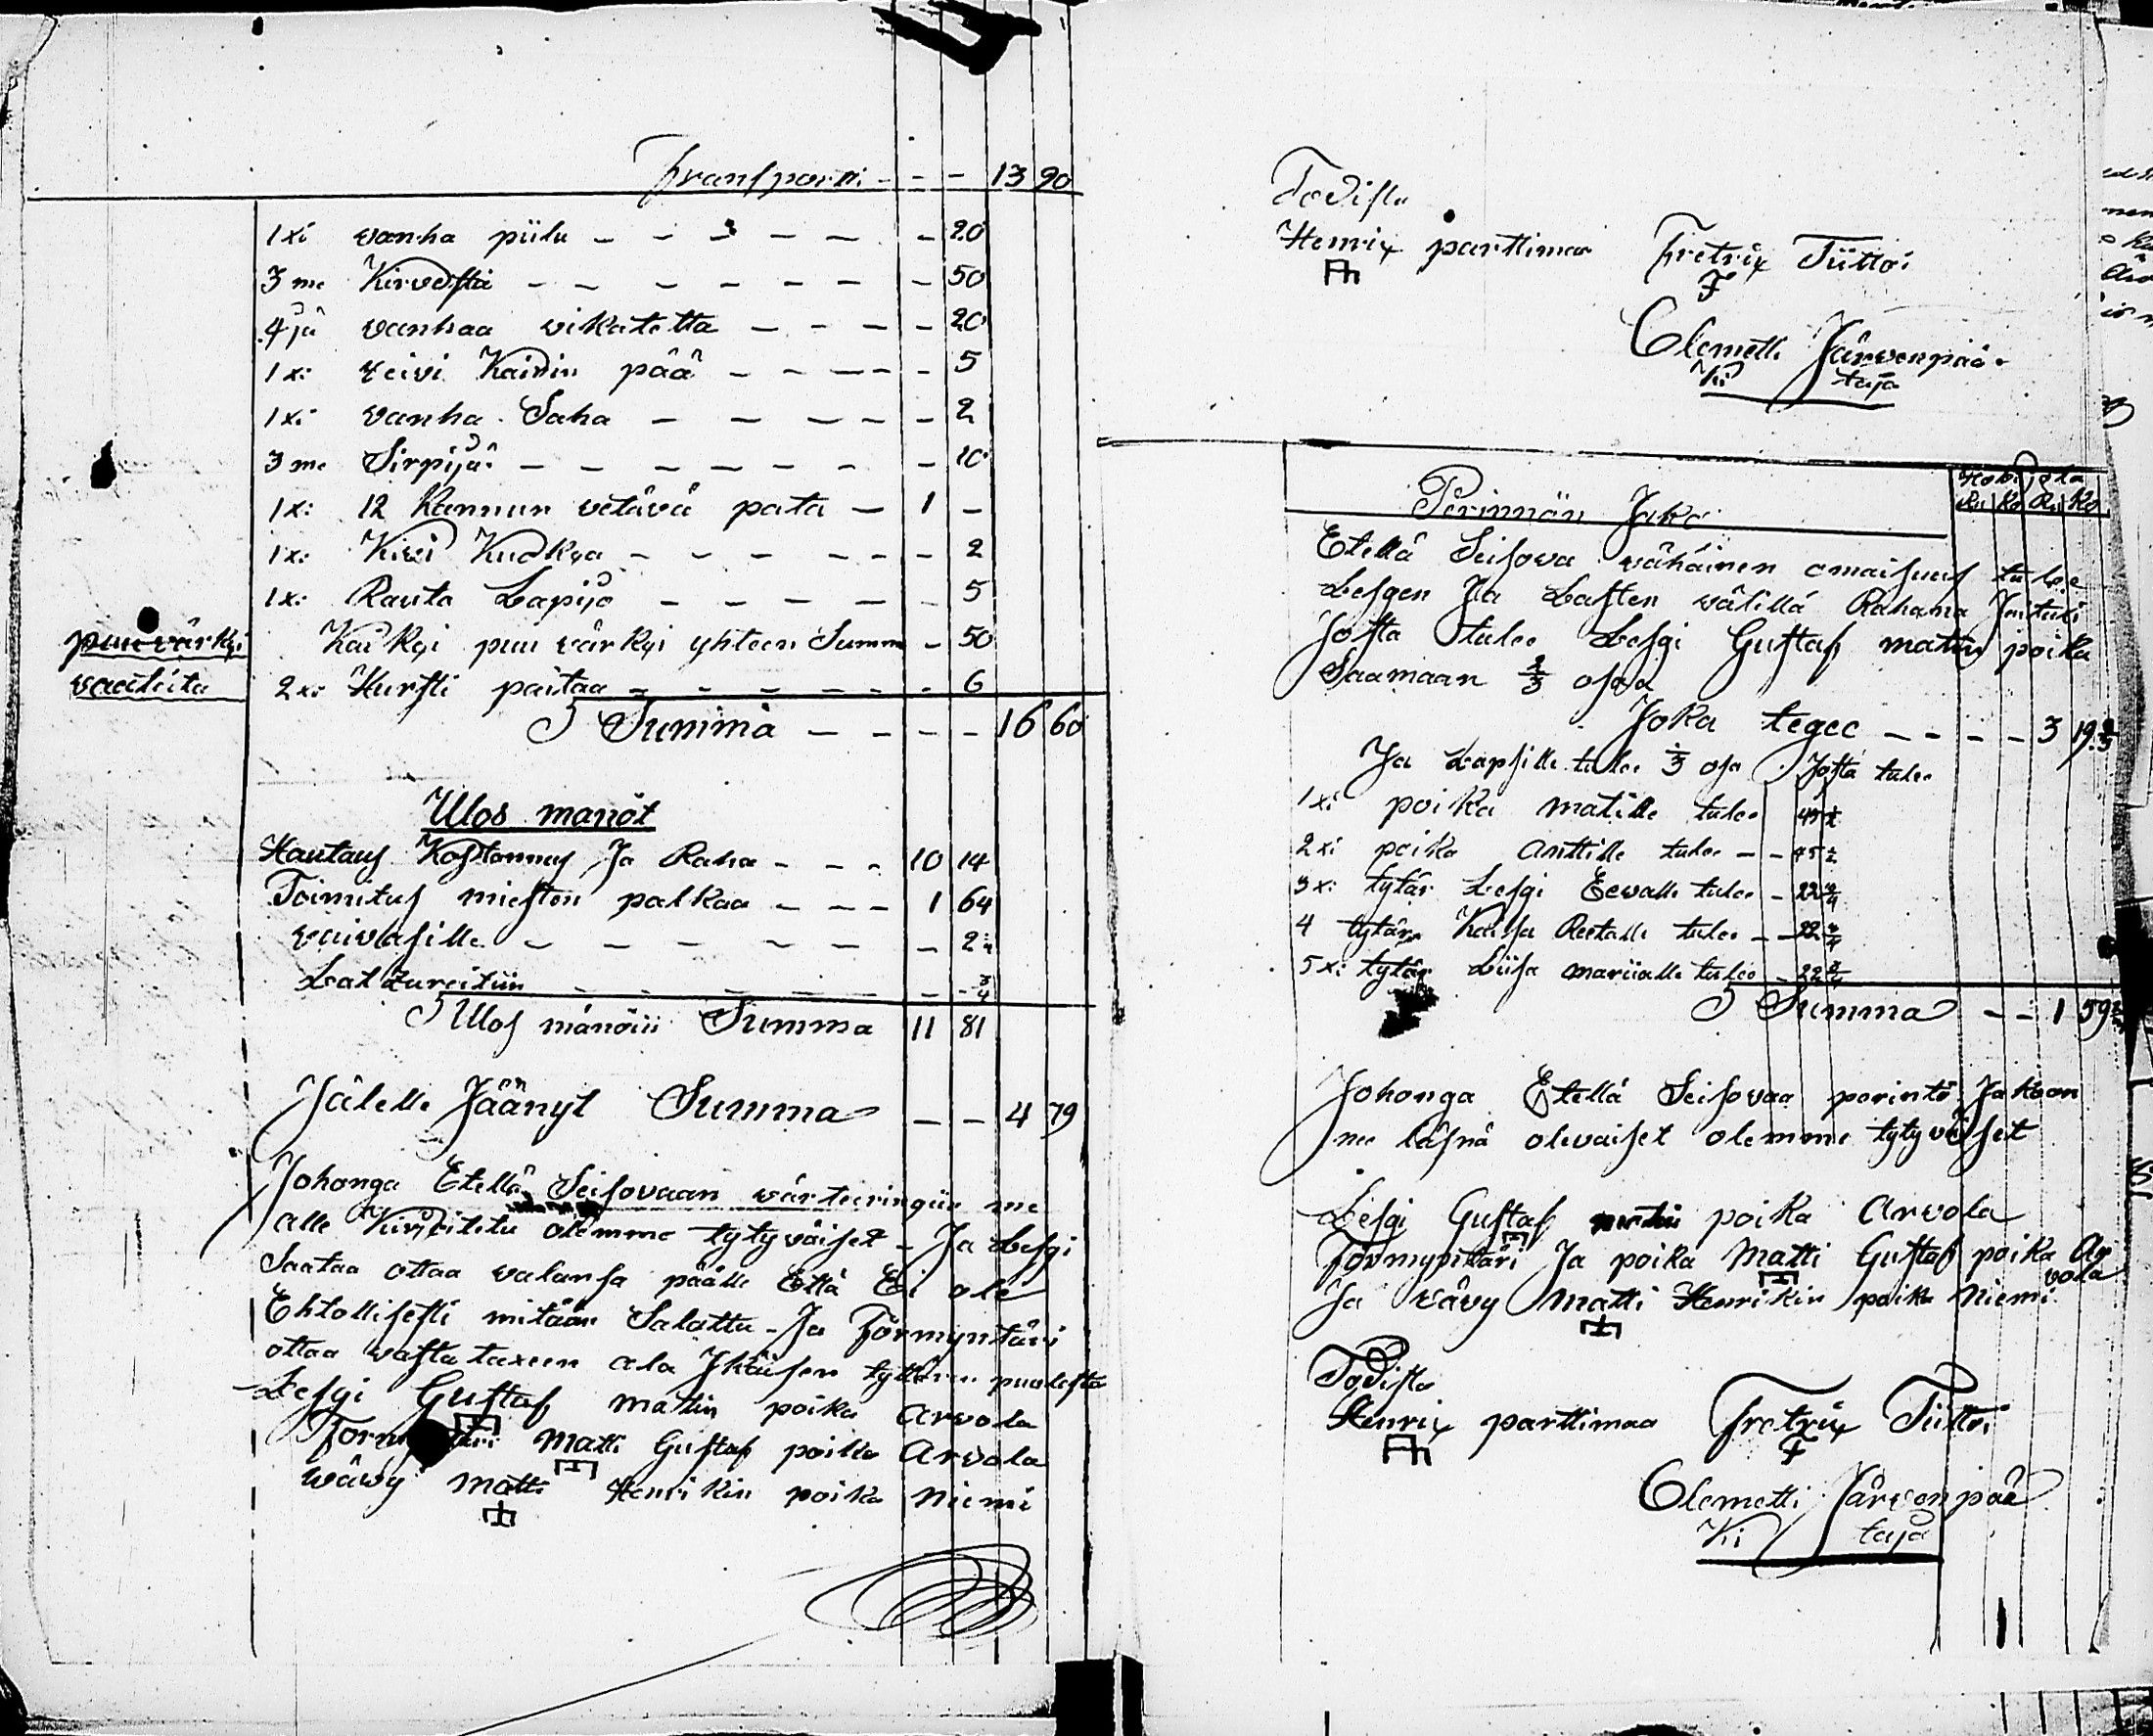 Transportti - - - 13 90
1xi vanha piilu - - - - - - 20
3 me Kirvestä - - - - - - - - 50
4 jä vanhaa vikatetta - - - - - 20
1xi veivi Kaidin pää - - - - - 5
1xi vanha Saha - - - - - - 2
3 me Sirpijä - - - - - - - - 10
1xi 12 Kannun vetävä pata - 1 -
1xi Kivi Kuokka - - - - - - - 2
1xi Rauta Lapijo - - - - - - 5
puuvärkyi Kaikki puu värkyi yhteen Summ - 50
vaateita 2xi Hursti paitaa - - - - - - - 6
Summa - - - - 16 60
Ulos manöt
Hautaus Kostannus Ja Raha - - - 10 14
Toimitus miesten palkaa - - - 1 64
vaivasille - - - - - - - 2 1/4
Latzareitiin - - - - - - - - 3/4
Ulos mänöin Summa 11 81
Jälelle Jäänyt Summa - - 4 79
Johonga Etellä Seisovaan värteeringiin me
alle Kirjoitetu olemme tytyväiset - Ja Lesgi
Saataa ottaa valansa päälle Että Ei ole
Ehtollisesti mitään Salattu - Ja Förmyntäri
ottaa vastataxeen ala Jkäisen tyttären puolesta
Lesgi Gustaf matin poika Arvola
Matti Gustaf poika Arvola
Wäwy Matti Henrikin poika Niemi
Todista
Henrix parttimaa Fretrix Tiitto
F
Clemetti Järvenpää
Ki taja
Perinnän Jako
Ru Ko Ru Ko
Etellä Seisova vähäinen omaisuus tulee
Lesgen Ja Lasten välillä Rahana Jaituksi
Josta tulee Lesgi Gustaf matin poika
Saamaan 2/3 osaa
Joka tegee - - - - 3 19 2/3
Ja Lapsille tulee 1/3 osa Josta tulee
1xi poika matille tulee 45 1/2
2xi poika Anttille tulee - - 45 1/2
3xi tytär Lesgi Eevalle tulee - 22 3/4
4 tytär Kaisa Reetalle tulee - - 22 3/4
5xi tytär Liisa mariialle tulee - 22 3/4
Summa - - 1 59
Johonga Etellä Seisovaa perintö Jakoon
me läsnä olevaiset olemme tytyväiset
Lesgi Gustaf matin poika Arvola
Förmyntäri Ja poika Matti Gustaf poika Ar
vola
Ja vävy Matti Henrikin poika Niemi
Todista
Henrix parttimaa Fretrix Tiitto
F
Clemetti Järvenpää
Ki taja